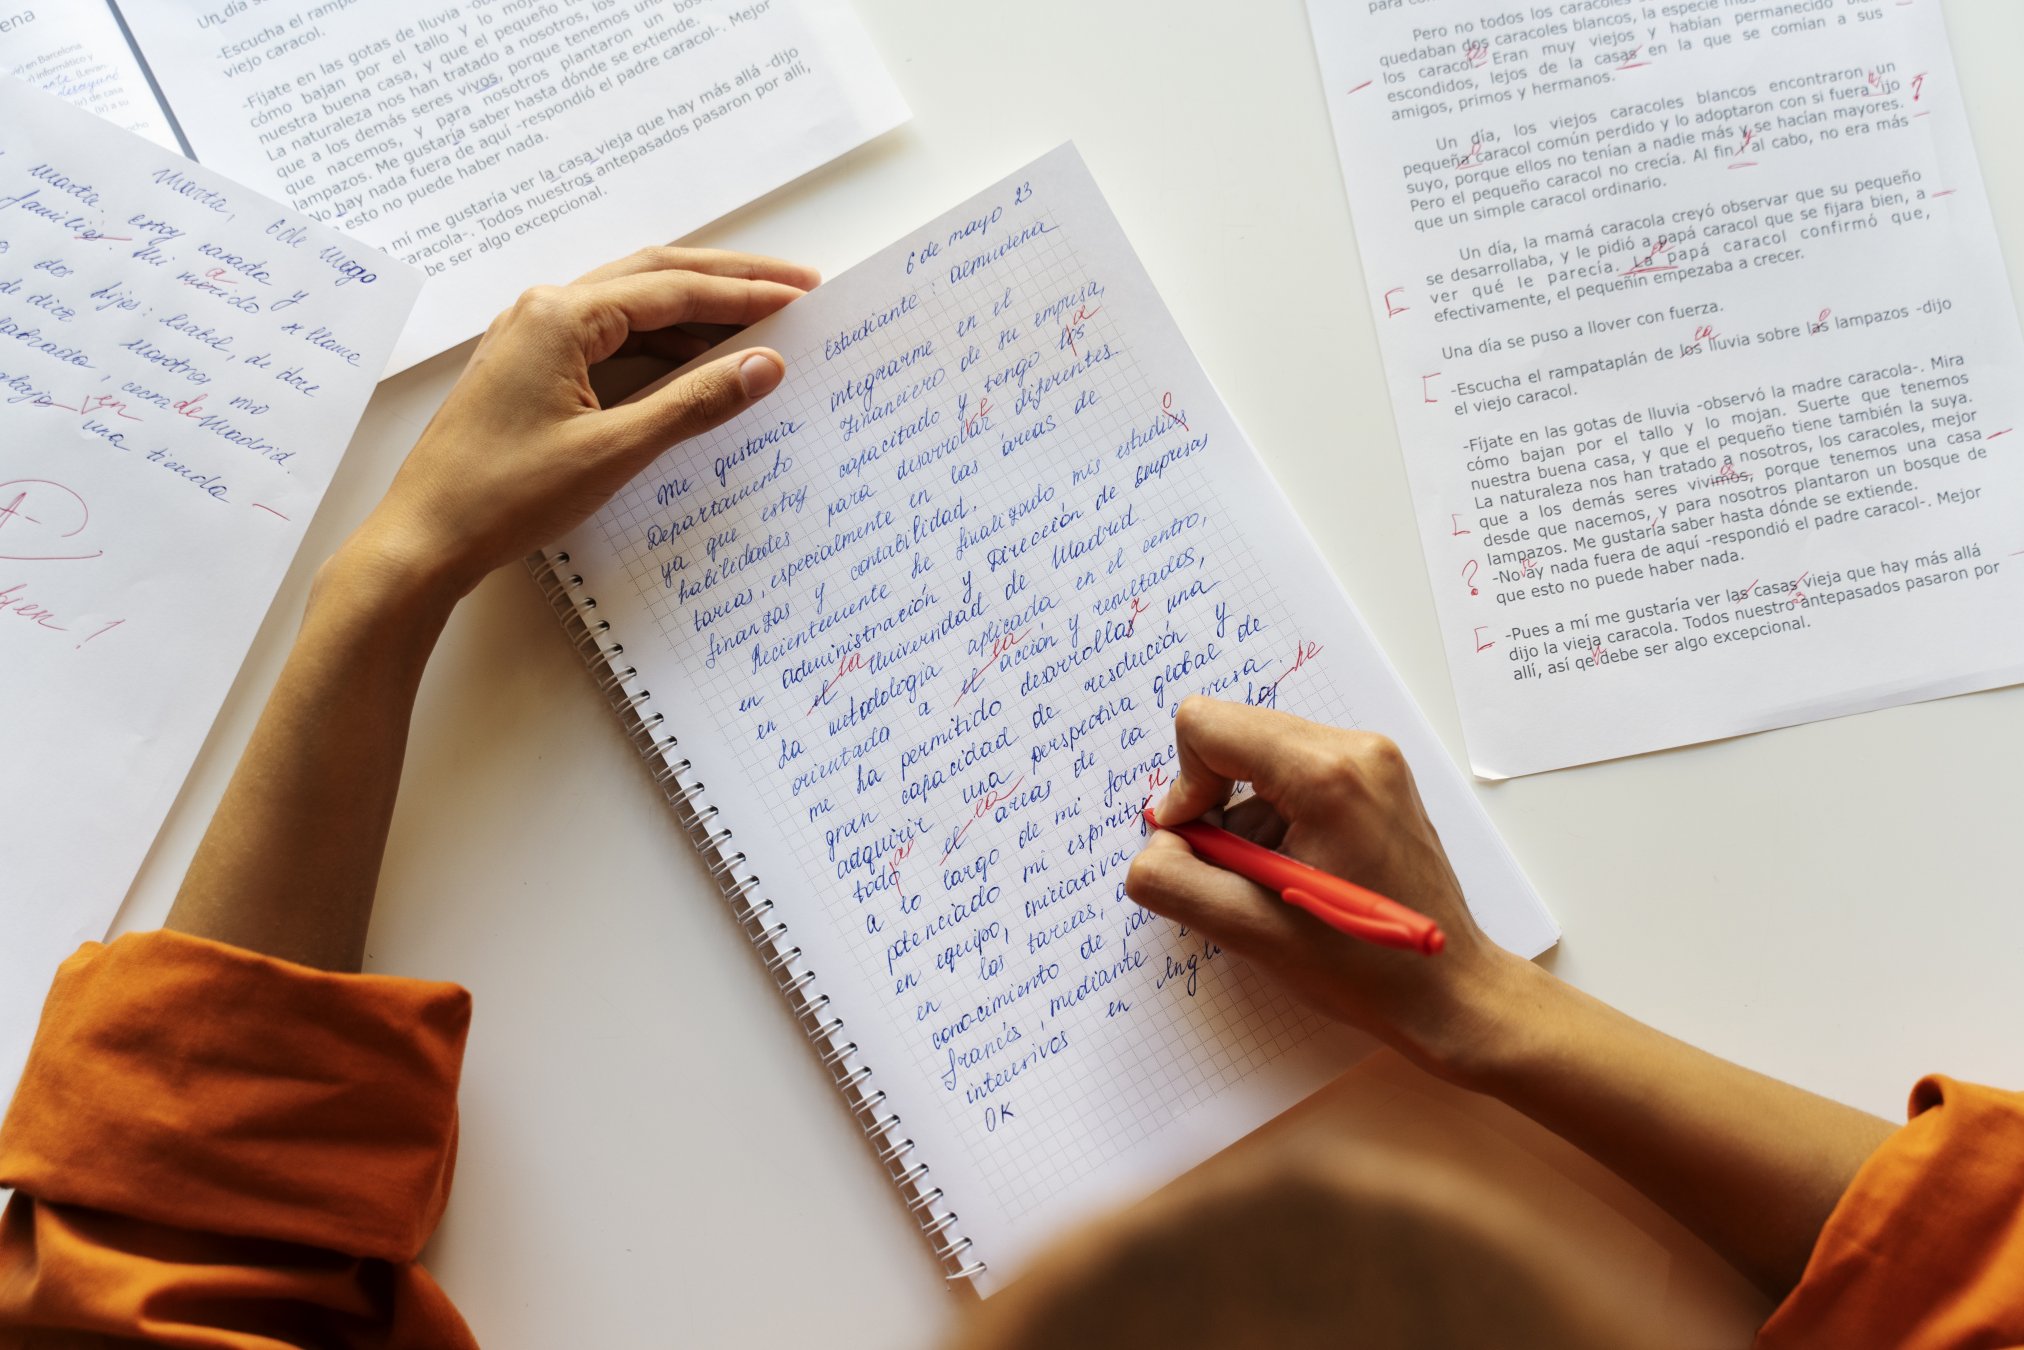 ena
en Barcelona
informático y
(Levan-
desayuno
de casa
(Ir) a su
Un día s
-Escucha el rampa
viejo caracol.
-Fíjate en las gotas de lluvia -ob
cómo bajan por el tallo y lo moja
nuestra buena casa, y que el pequeño ti
La naturaleza nos han tratado a nosotros, los
que a los demás seres vivos, porque tenemos un
que nacemos, y para nosotros plantaron un bosq
lampazos. Me gustaría saber hasta dónde se extiende.
-No hay nada fuera de aquí -respondió el padre caracol-. Mejor
esto no puede haber nada.
a mí me gustaría ver la casa vieja que hay más allá -dijo
caracola-. Todos nuestros antepasados pasaron por allí,
be ser algo excepcional.
Marta, 6 de mayo
Marta. estoy casada y
familia. Mi merido se llama
a
dos hijos: Isabel, de doce
de diez. Nosotros vivo
cerca de Madrid.
en una tienda
A-
bien!
6 de mayo 23
Estudiante: Almudena
Me gustaria integrarme en el
Departamento Financiero de su empresa,
ya que estoy capacitado y tengo los
a
habilidades para desarrollar diferentes
tareas, especialmente en las áreas de
finanzas y contabilidad.
Recientemente he finalizado mis estudios
o
en administración y Dirección de Empresas
en el Universidad de Madrid.
la
La metodología aplicada en el centro,
orientada a el acción y resultados,
la
me ha permitido desarrollas una
r
gran capacidad de resolución y
adquirir una perspectiva global de
todo el areas de la empresa.
as
la
a lo largo de mi formac hoy
he
potenciado mi espíritu
u
en equipo, iniciativa
en las tareas, a
conocimiento de idi
francés, mediante e
intensivos en Ingl
OK
Pero no todos los caracoles
quedaban dos caracoles blancos, la especie más
los caracol. Eran muy viejos y habían permanecido
escondidos, lejos de la casas en la que se comían a sus
amigos, primos y hermanos.
Un día, los viejos caracoles blancos encontraron un
pequeña caracol común perdido y lo adoptaron con si fuera ijo
o
?
suyo, porque ellos no tenían a nadie más y se hacían mayores.
Pero el pequeño caracol no crecía. Al fin y al cabo, no era más
que un simple caracol ordinario.
Un día, la mamá caracola creyó observar que su pequeño
se desarrollaba, y le pidió a papá caracol que se fijara bien, a
ver qué le parecía. La papá caracol confirmó que,
efectivamente, el pequeñín empezaba a crecer.
Una día se puso a llover con fuerza.
-Escucha el rampataplán de los lluvia sobre las lampazos -dijo
la
o
el viejo caracol.
-Fíjate en las gotas de lluvia -observó la madre caracola-. Mira
cómo bajan por el tallo y lo mojan. Suerte que tenemos
nuestra buena casa, y que el pequeño tiene también la suya.
La naturaleza nos han tratado a nosotros, los caracoles, mejor
que a los demás seres vivimos, porque tenemos una casa
os
desde que nacemos, y para nosotros plantaron un bosque de
lampazos. Me gustaría saber hasta dónde se extiende.
?
-No ay nada fuera de aquí -respondió el padre caracol-. Mejor
que esto no puede haber nada.
-Pues a mí me gustaría ver las casas vieja que hay más allá
dijo la vieja caracola. Todos nuestro antepasados pasaron por
allí, así qe debe ser algo excepcional.